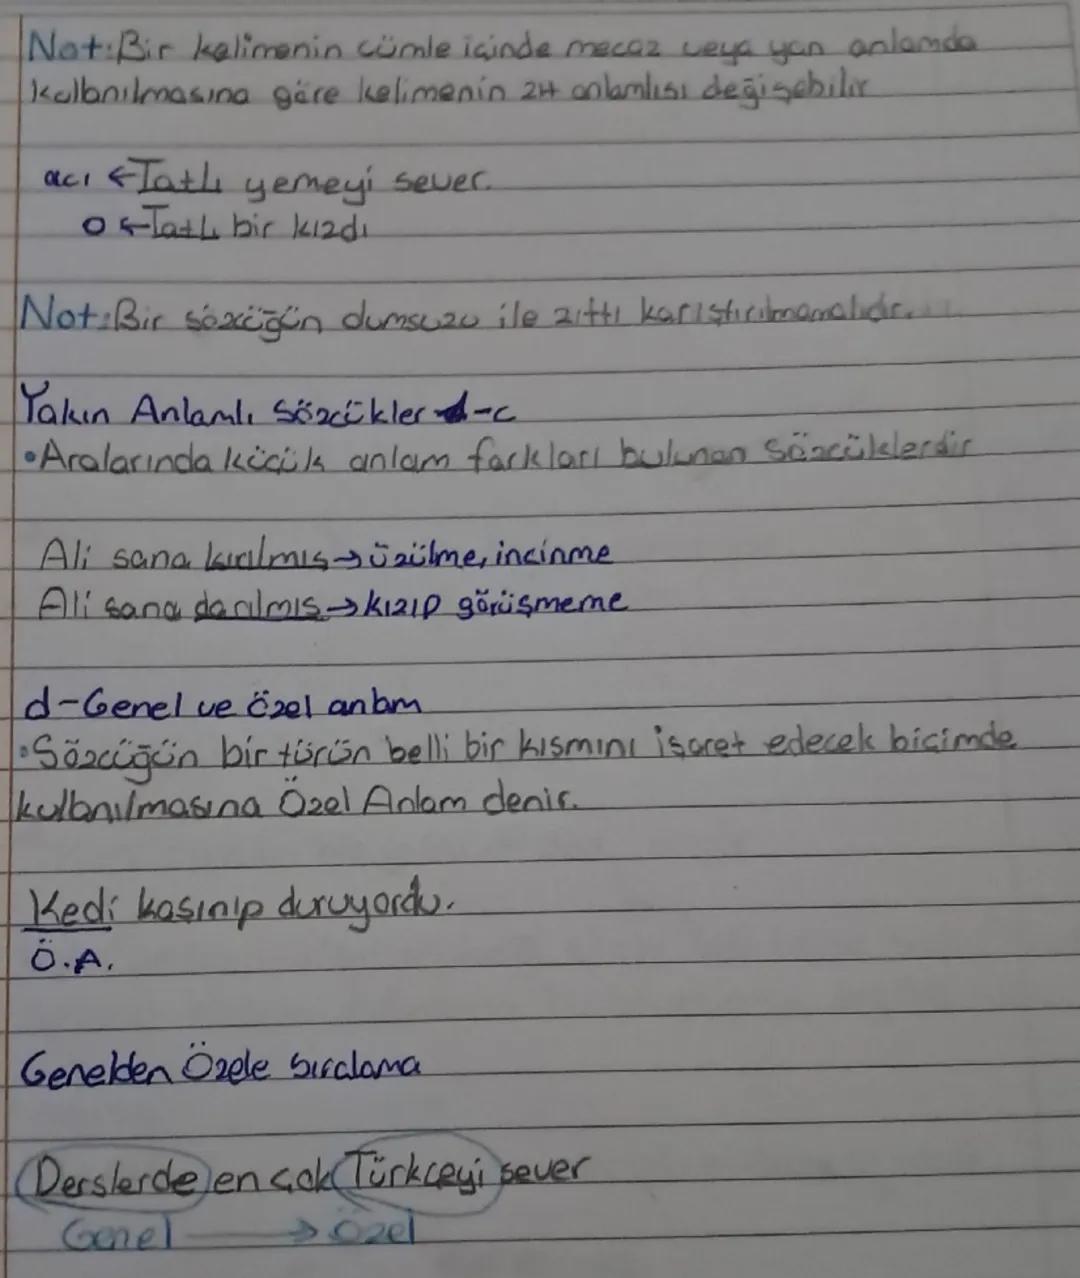 Not:Bir kelimenin cümle içinde mecaz veya yan anlamda
kullanılmasına göre kelimenin zıt anlamlısı değişebilir
acı ←Tatlı yemeyi sever.
0 ←Tatlı bir kızdı
Not:Bir sözcüğün olumsuzu ile zıttı karıştırılmamalıdır...
Yakın Anlamlı Sözcükler -c
•Aralarında küçük anlam farkları bulunan sözcüklerdir
Ali sana kırılmış→üzülme, incinme
Ali sana darılmış→kızıp görüşmeme
d-Genel ve özel anlam
•Sözcüğün bir türün belli bir kısmını işaret edecek biçimde
kullanılmasına Özel Anlam denir.
Kedi kaşınıp duruyordu.
Ö.A.
Genelden Özele sıralama
Derslerde en çok Türkçeyi sever
Genel → Özel